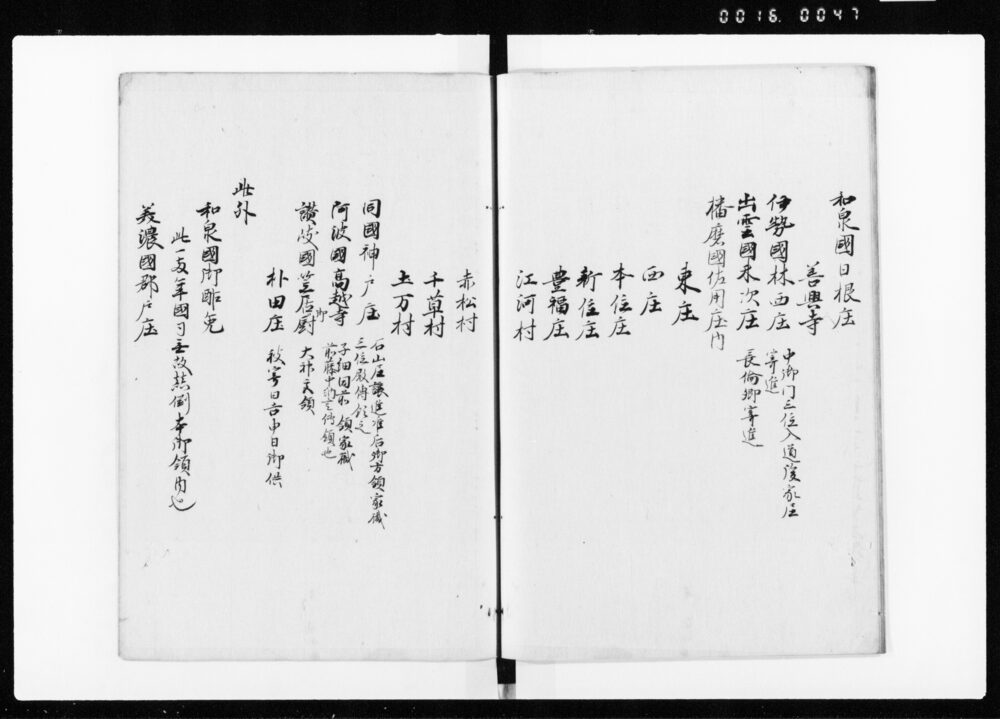 0016 0047
和泉國日根庄
善興寺
伊勢國林西庄 中御门三位入道後家庄
寄進
出雲國末次庄 長倫卿寄進
播磨國佐用庄内
東庄
西庄
本位庄
新位庄
豊福庄
江河村
赤松村
千草村
土万村
同國神戸庄 石山庄譲進准后御方領家職
三位殿傳領之
阿波國高越寺 子細同前 領家職
前藤中納言傳領也
讃岐國笠居御厨 大祥天領
朴田庄 被寄日吉申日御供
此外
和泉國御酢免
此一両年國司無故顛倒本御領内也
美濃國郡戸庄